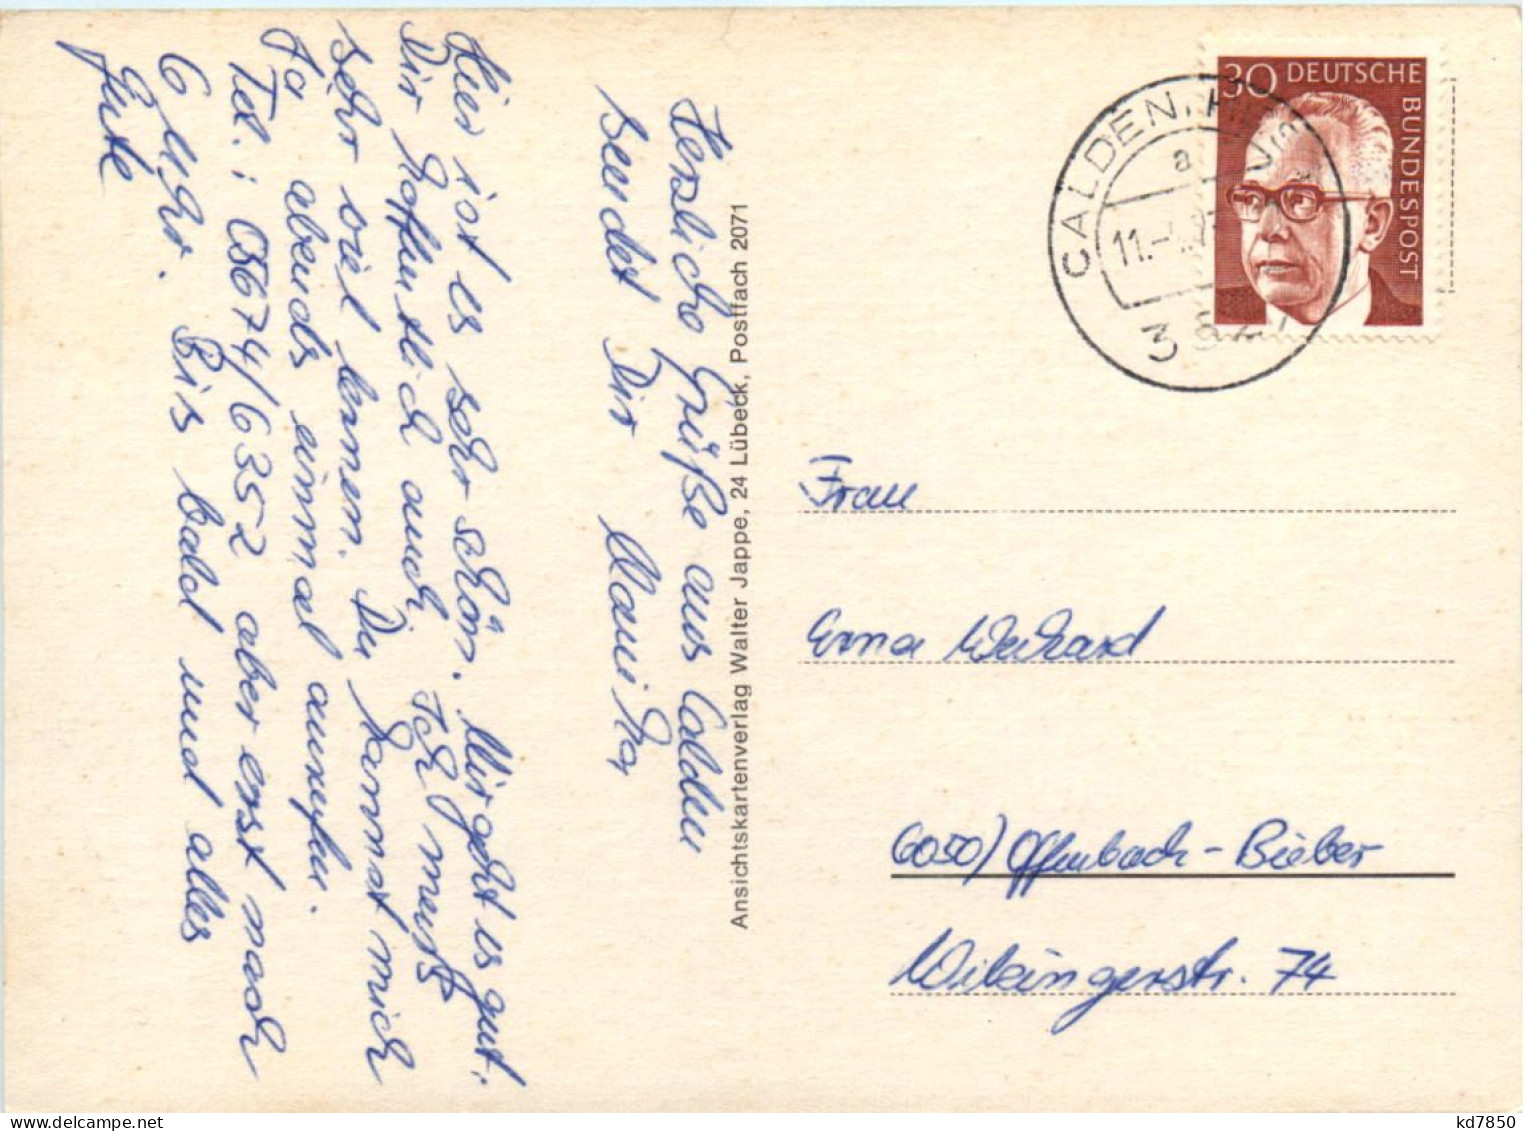 Herzliche Grüße aus Calden
sendet Dir Manika
Hier ist es sehr schön. Mir geht es gut.
Dir hoffentlich auch. Ich muß
sehr viel lernen. Du kannst mich
Ja abends einmal anrufen.
Tel.: 05674/6352 aber erst nach
6 Uhr. Bis bald und alles
Gute
Ansichtskartenverlag Walter Jappe, 24 Lübeck, Postfach 2071
30 DEUTSCHE
BUNDESPOST
CALDEN,
a
11.-4.
Frau
Erna
6050) Offenbach-Bieber
Wikingerstr. 74
kd7850